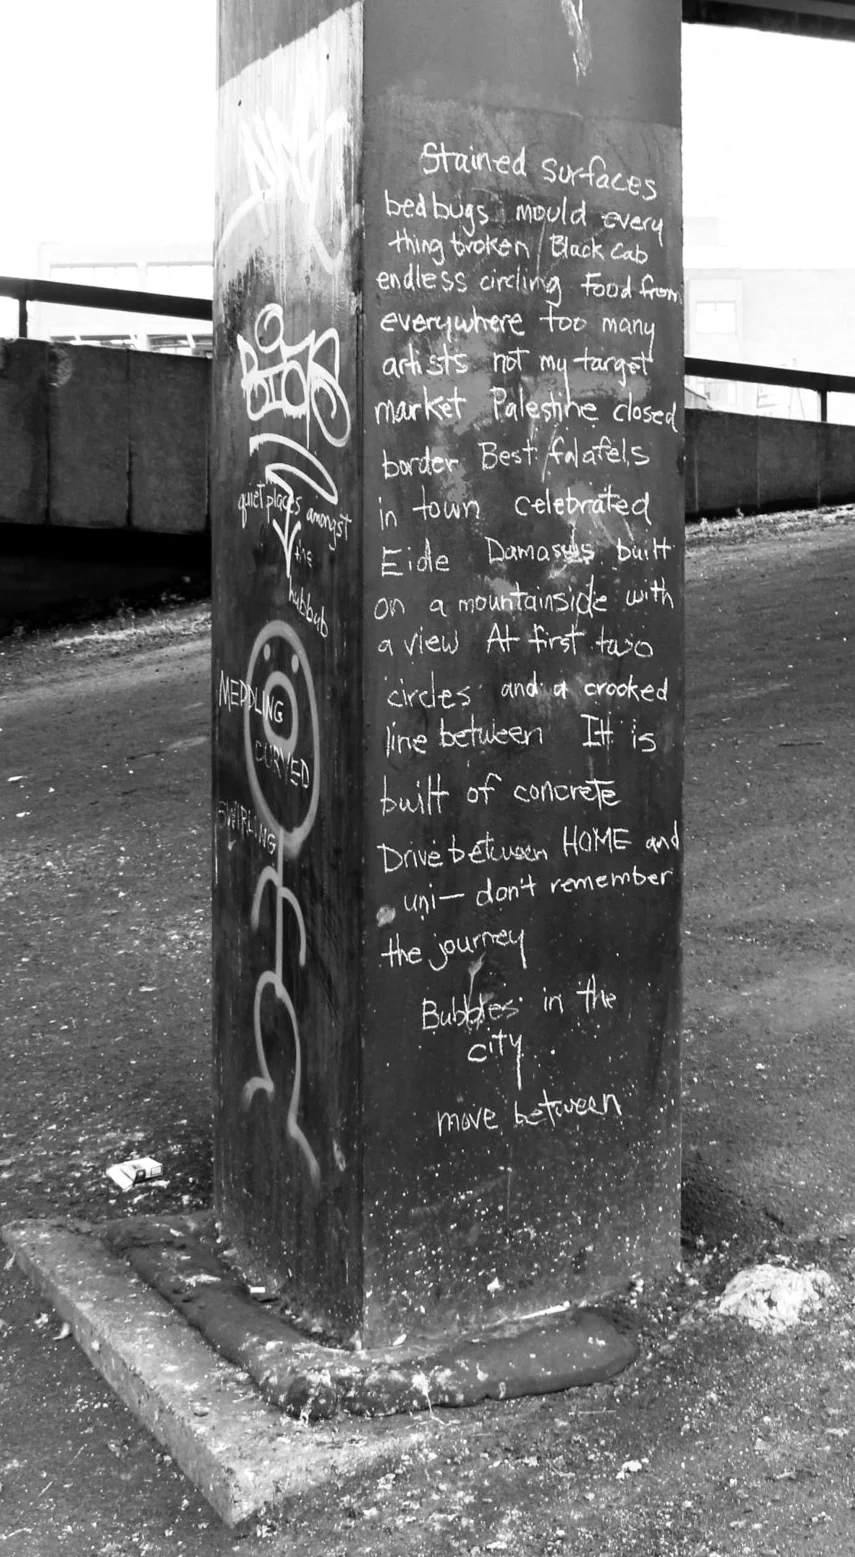 Stained surfaces
bedbugs mould every
thing broken Black cab
endless circling Food from
everywhere too many
artists not my target
market Palestine closed
border Best falafels
in town celebrated
Eide Damascus built
on a mountainside with
a view At first two
circles and a crooked
line between It is
built of concrete
Drive between HOME and
uni— don't remember
the journey
Bubbles in the
city
move between
quiet places amongst
the
hubbub
MEDDLING
CURVED
SWIRLING